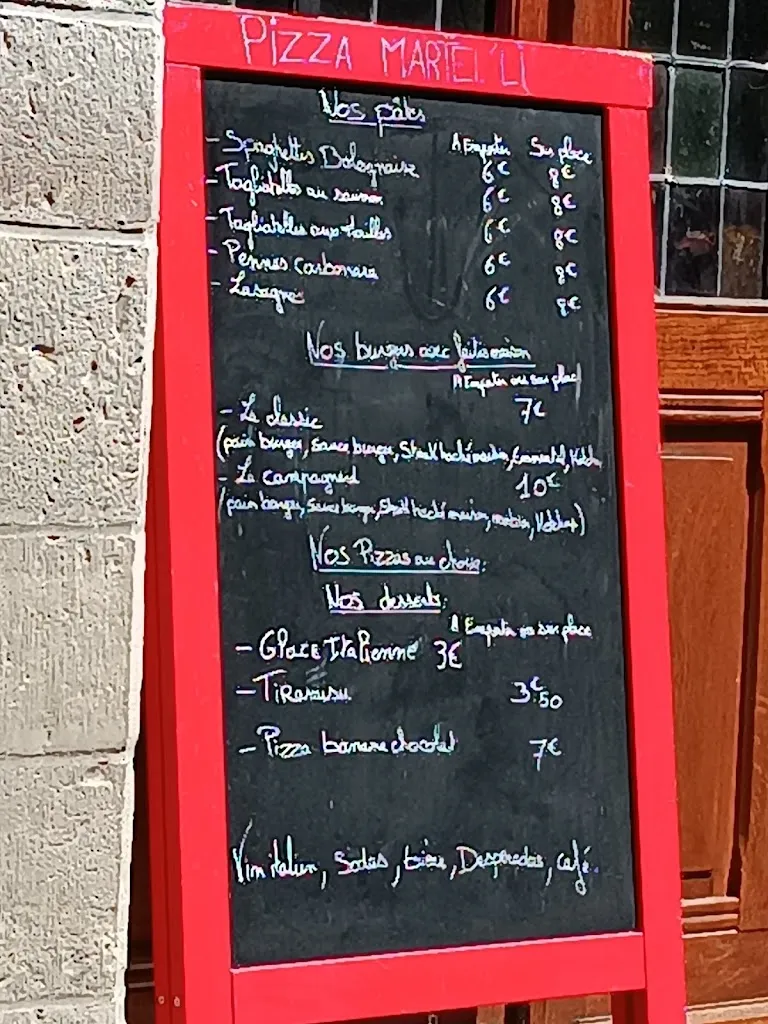 PIZZA MARTEL'LI
Nos pâtes
A Emporter Sur place
- Spaghettis Bolognaise 6€ 8€
- Tagliatelles au saumon 6€ 8€
- Tagliatelles aux 6€ 8€
- Pennes Carbonara 6€ 8€
- Lasagnes 6€ 8€
Nos burgers avec frites maison
A Emporter ou sur place
- Le classic 7€
(pain burger, sauce burger, Steak haché maison, Emmental, Ketchup
- Le campagnard 10€
(pain burger, Sauce burger, Steak haché maison, Ketchup)
Nos Pizzas au choix:
Nos desserts:
A Emporter ou sur place
- Glace Italienne 3€
- Tiramisu 3€50
- Pizza banane chocolat 7€
Vin italien, Sodas, bière, Desperados, café.